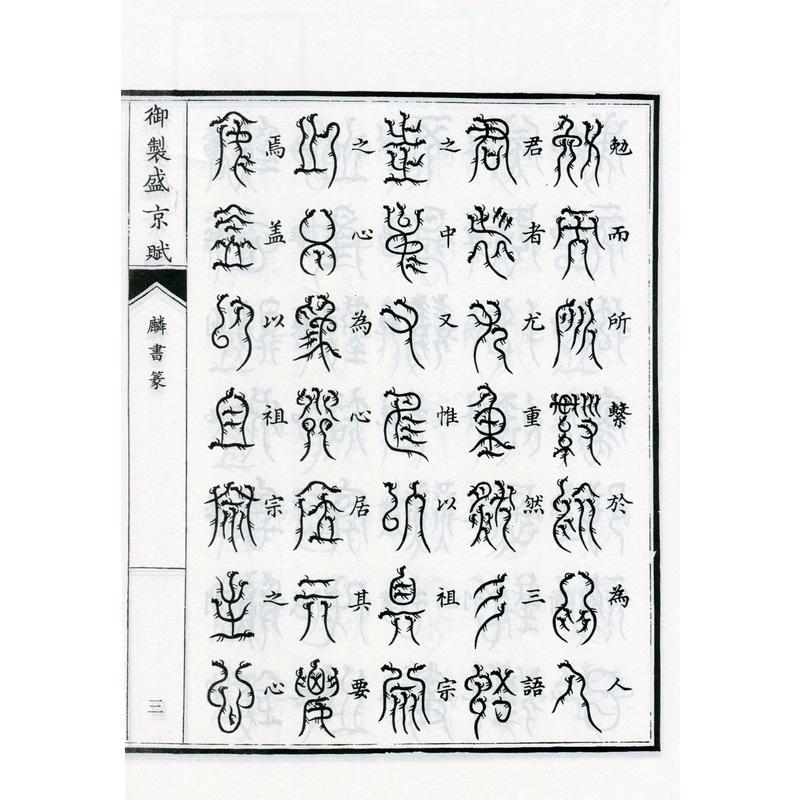 勉而所繫於為人
君者尤重然三語
之中又惟以祖宗
之心為心居其要
焉盖以祖宗之心
御製盛京賦
麟書篆
三